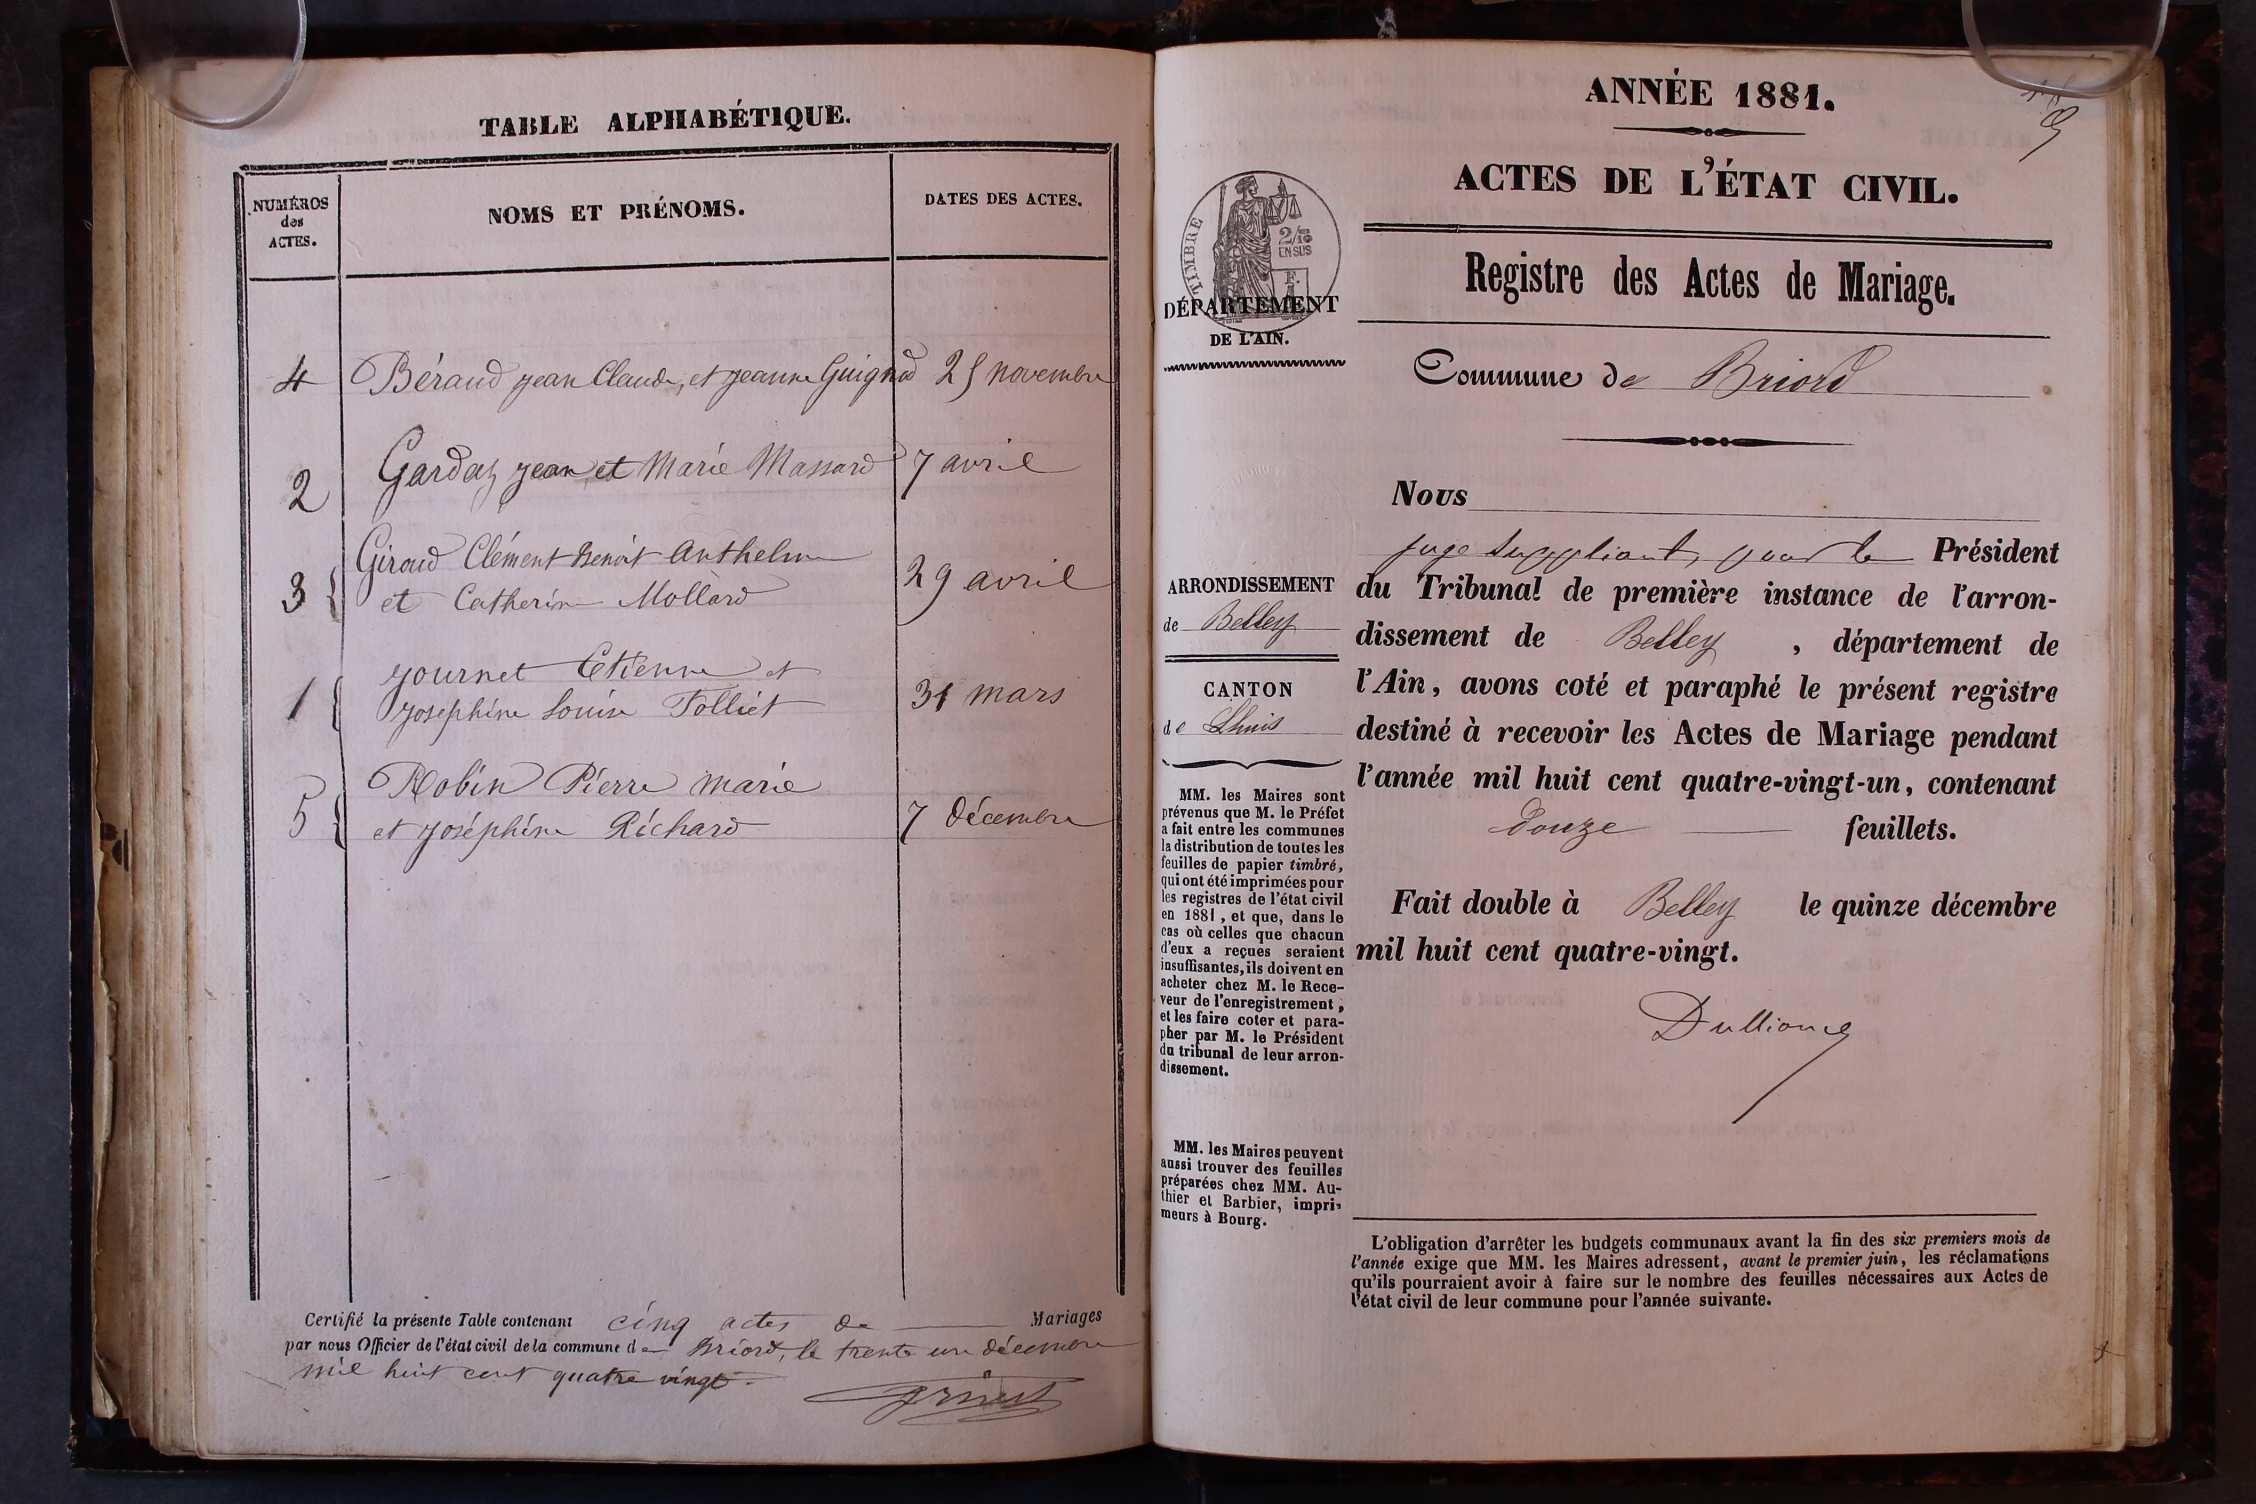 TABLE ALPHABÉTIQUE.
NUMÉROS
des
ACTES.
NOMS ET PRÉNOMS.
DATES DES ACTES.
4 Béraud Jean Claude, et Jeanne Guignod 25 novembre
2 Gardaz Jean et Marie Massard 7 avril
Giroud Clément Benoit Anthelme
3 et Catherine Mollard 29 avril
Journet Etienne et
1 Joséphine Louise Tolliet 31 mars
Robin Pierre Marie
5 et Joséphine Richard 7 décembre
Certifié la présente Table contenant cinq actes de Mariages
par nous Officier de l'état civil de la commune de Briord, le trente un décembre
mil huit cent quatre vingt.
ANNÉE 1881.
ACTES DE L'ÉTAT CIVIL.
Registre des Actes de Mariage.
TIMBRE
2/10
EN SUS
DÉPARTEMENT
DE L'AIN.
Commune de Briord
ARRONDISSEMENT
de Belley
CANTON
de Lhuis
MM. les Maires sont
prévenus que M. le Préfet
a fait entre les communes
la distribution de toutes les
feuilles de papier timbré,
qui ont été imprimées pour
les registres de l'état civil
en 1881, et que, dans le
cas où celles que chacun
d'eux a reçues seraient
insuffisantes, ils doivent en
acheter chez M. le Rece-
veur de l'enregistrement,
et les faire coter et para-
pher par M. le Président
du tribunal de leur arron-
dissement.
MM. les Maires peuvent
aussi trouver des feuilles
préparées chez MM. Au-
thier et Barbier, impri-
meurs à Bourg.
Nous
juge suppléant, pour le Président
du Tribunal de première instance de l'arron-
dissement de Belley, département de
l'Ain, avons coté et paraphé le présent registre
destiné à recevoir les Actes de Mariage pendant
l'année mil huit cent quatre-vingt-un, contenant
douze feuillets.
Fait double à Belley le quinze décembre
mil huit cent quatre-vingt.
L'obligation d'arrêter les budgets communaux avant la fin des six premiers mois de
l'année exige que MM. les Maires adressent, avant le premier juin, les réclamations
qu'ils pourraient avoir à faire sur le nombre des feuilles nécessaires aux Actes de
l'état civil de leur commune pour l'année suivante.